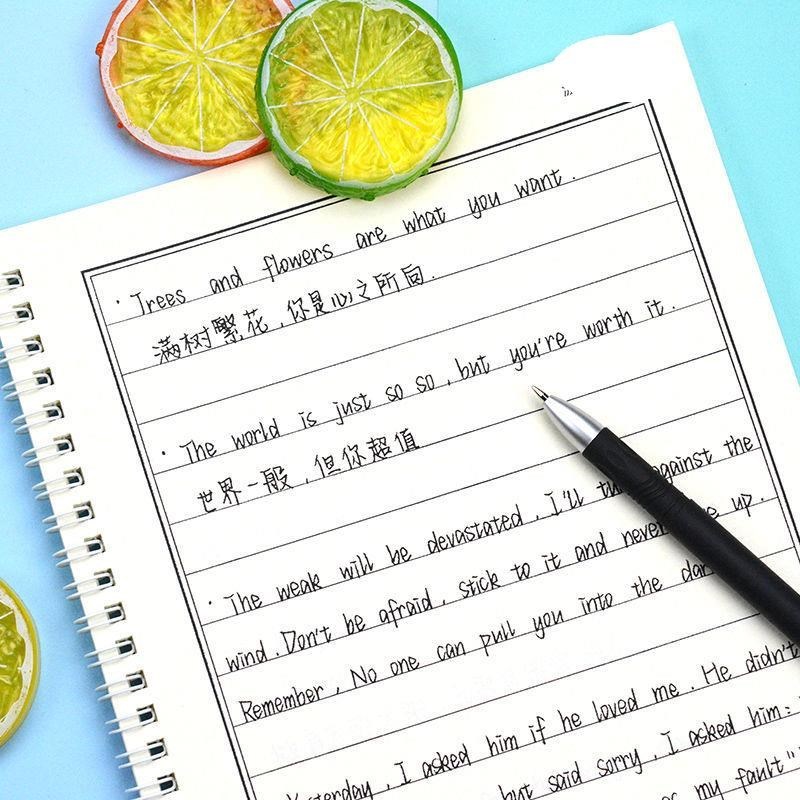 · Trees and flowers are what you want.
满树繁花，你是心之所向.
· The world is just so so, but you're worth it.
世界一般，但你超值
· The weak will be devastated, I'll the
wind. Don't be afraid, stick to it and up.
Remember, No one can pull you into the
Yesterday, I asked him if he loved me. He didn't
but said sorry, I asked him:
my fault"